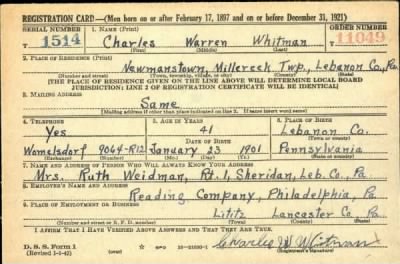 REGISTRATION CARD—(Men born on or after February 17, 1897 and on or before December 31, 1921)
SERIAL NUMBER 1. NAME (Print) ORDER NUMBER
T 1514 Charles Warren Whitman T 11049
(First) (Middle) (Last)
2. PLACE OF RESIDENCE (Print)
Newmanstown, Millcreek Twp., Lebanon Co., Pa.
(Number and street) (Town, township, village, or city) (County) (State)
[THE PLACE OF RESIDENCE GIVEN ON THE LINE ABOVE WILL DETERMINE LOCAL BOARD
JURISDICTION; LINE 2 OF REGISTRATION CERTIFICATE WILL BE IDENTICAL]
3. MAILING ADDRESS
Same
[Mailing address if other than place indicated on line 2. If same insert word same]
4. TELEPHONE 5. AGE IN YEARS 6. PLACE OF BIRTH
Yes 41 Lebanon Co.
DATE OF BIRTH (Town or county)
Womelsdorf 9064-R12 January 23 1901 Pennsylvania
(Exchange) (Number) (Mo.) (Day) (Yr.) (State or country)
7. NAME AND ADDRESS OF PERSON WHO WILL ALWAYS KNOW YOUR ADDRESS
Mrs. Ruth Weidman, Rt. 1, Sheridan, Leb. Co., Pa.
8. EMPLOYER'S NAME AND ADDRESS
Reading Company, Philadelphia, Pa.
9. PLACE OF EMPLOYMENT OR BUSINESS
Lititz Lancaster Co. Pa.
(Number and street or R. F. D. number) (Town) (County) (State)
I AFFIRM THAT I HAVE VERIFIED ABOVE ANSWERS AND THAT THEY ARE TRUE.
D. S. S. Form 1
(Revised 1-1-42) Charles W Whitman
(Registrant's signature)